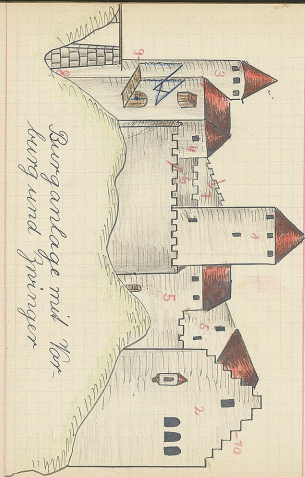 Burganlage mit Vor-
burg und Zwinger
1
2
3
4
5
6
8
9
10